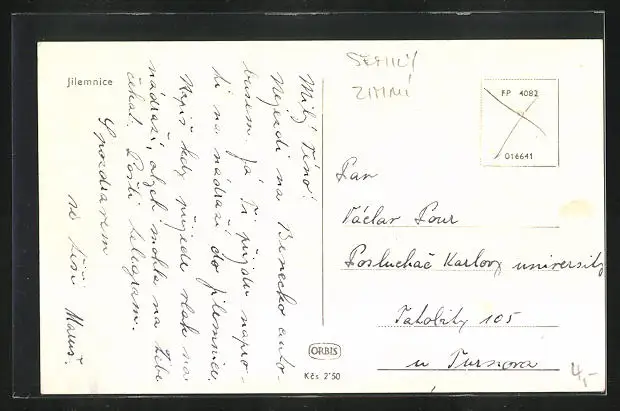 Jilemnice
Milý Véno!
Nejezdi na Benecko auto-
busem. Já Ti přijdu napro-
ti na nádraží do Jilemnice.
Napiš kdy přijede vlak na
nádraží, abych mohla na Tebe
čekat. Pošli telegram.
S pozdravem
se těší
ZIMNÍ
FP 4082
016641
Pan
Václav Pour
Posluchač Karlovy university
Tatobity 105
u Turnova
ORBIS
Kčs 2'50
4,-